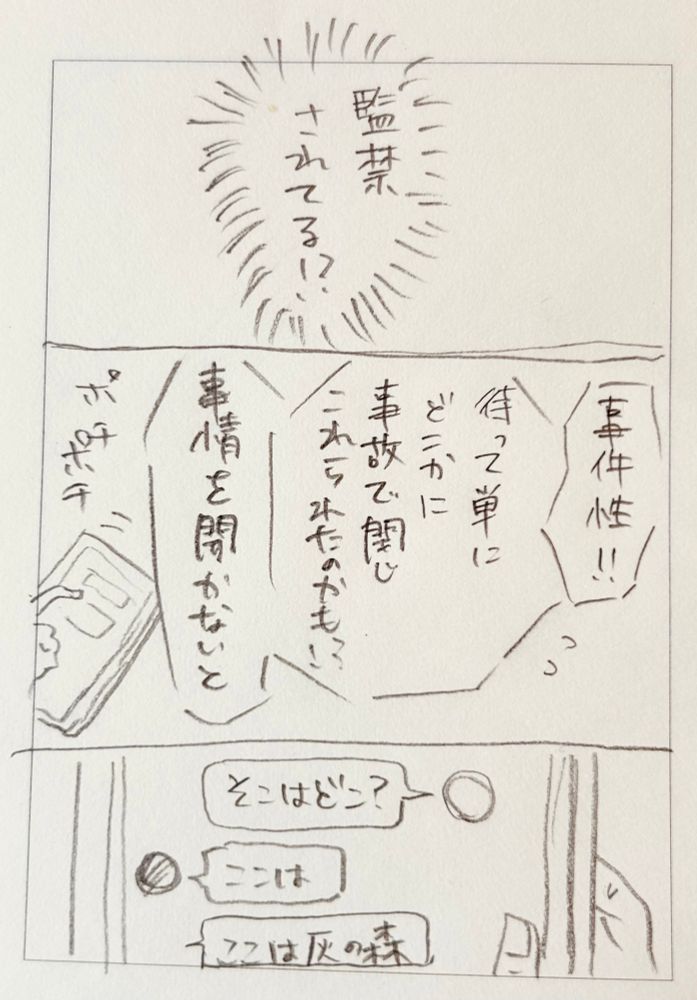 監禁
されてる!?
事件性!!
待って単に
どこかに
事故で閉じ
こめられたのかも!?
事情を聞かないと
ポチ
ポチ
そこはどこ?
ここは
ここは灰の森